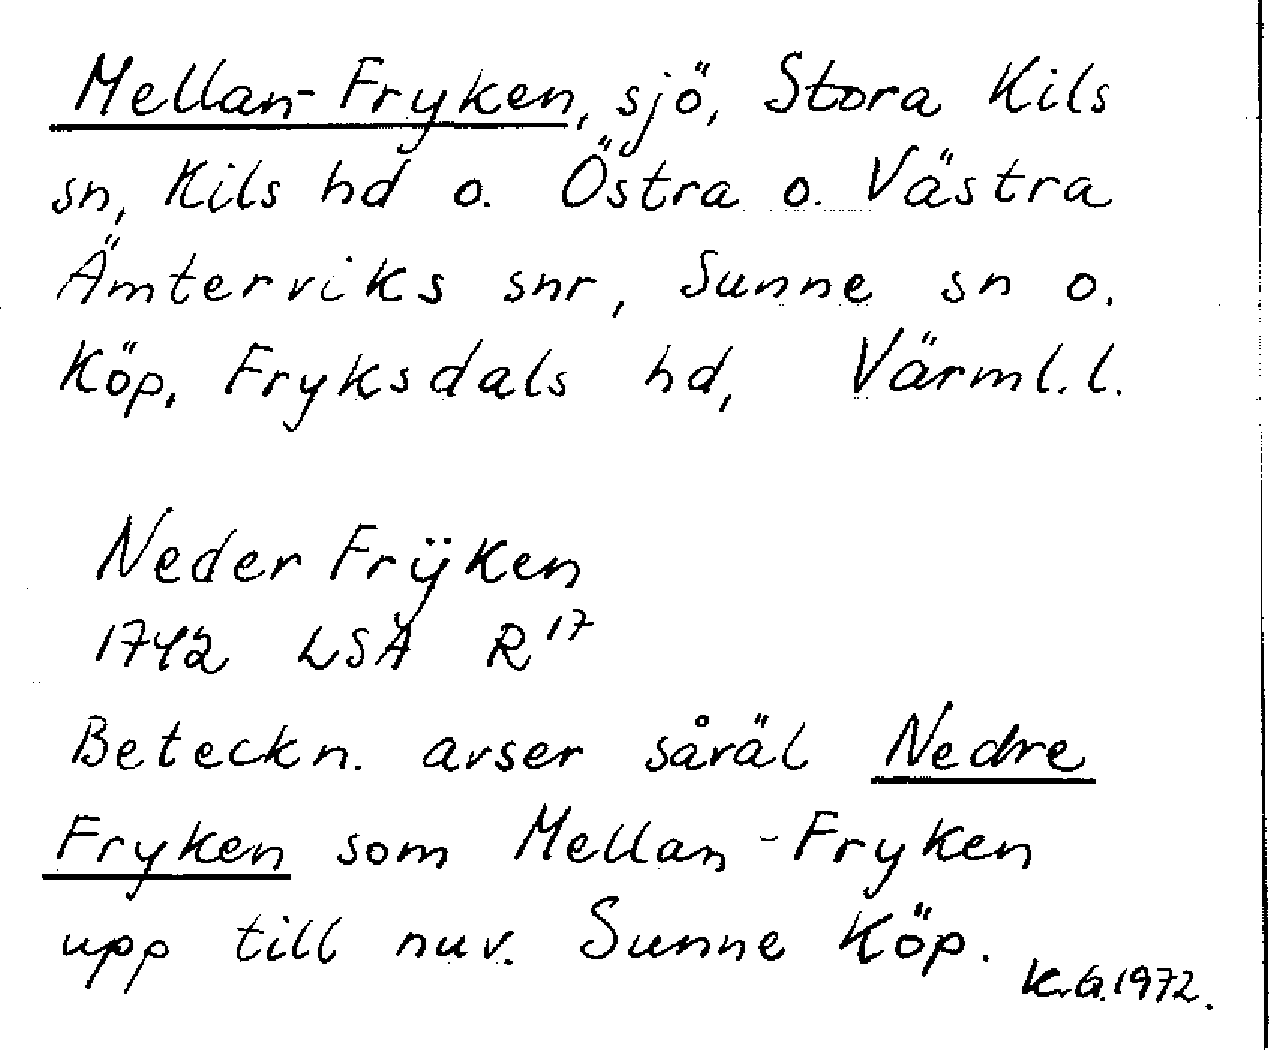 Mellan-Fryken, sjö, Stora Kils
sn, Kils hd o. Östra o. Västra
Ämterviks snr, Sunne sn o.
Köp, Fryksdals hd, Värml. l.
Neder Frÿken
1742 LSA R¹⁷
Beteckn. avser såväl Nedre
Fryken som Mellan-Fryken
upp till nuv. Sunne Köp.
K.G. 1972.